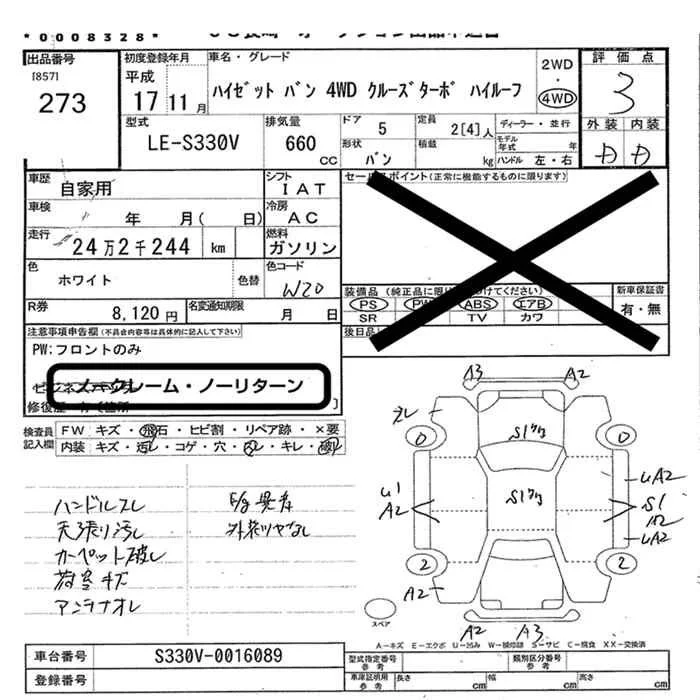 *0008328*
出品番号
[857]
273
初度登録年月
平成
17 11月
車名・グレード
ハイゼット バン 4WD クルーズターボ ハイルーフ
2WD
・
4WD
評価点
3
外装 内装
D D
型式
LE-S330V
排気量
660
CC
ドア
5
定員
2[4]人
形状
バン
積載
kg
ディーラー・並行
モデル年式 年
ハンドル 左・右
車歴
自家用
シフト
IAT
車検
年 月( 日)
冷房
AC
走行
24万2千244 km
燃料
ガソリン
色
ホワイト
色替
色コード
W20
R券
8,120円
名変通知期限
月 日
セールスポイント(正常に機能するものに限ります)
装備品
PS PW ABS エアB
SR TV カワ
新車保証書
有・無
後日品
注意事項申告欄(不具合内容等は具体的に記入して下さい)
PW:フロントのみ
ノークレーム・ノーリターン
検査員記入欄
FW キズ・飛石・ヒビ割・リペア跡・×要
内装 キズ・汚レ・コゲ・穴・スレ・キレ・破レ
ハンドルスレ
天張り汚レ
カーペット破レ
荷室キズ
アンテナオレ
E/g異音
外装ツヤなし
A3 A2
0 0
U1
A2
UA2
S1
UA2
2 2
A2
A2 A3
スペア
A-キズ E-エクボ U-凹み W-補修跡 S-サビ C-腐食 XX-交換済
車台番号
S330V-0016089
登録番号
型式指定番号
参考
類別区分番号
参考
車庫証明用
参考
長さ cm
幅 cm
高さ cm